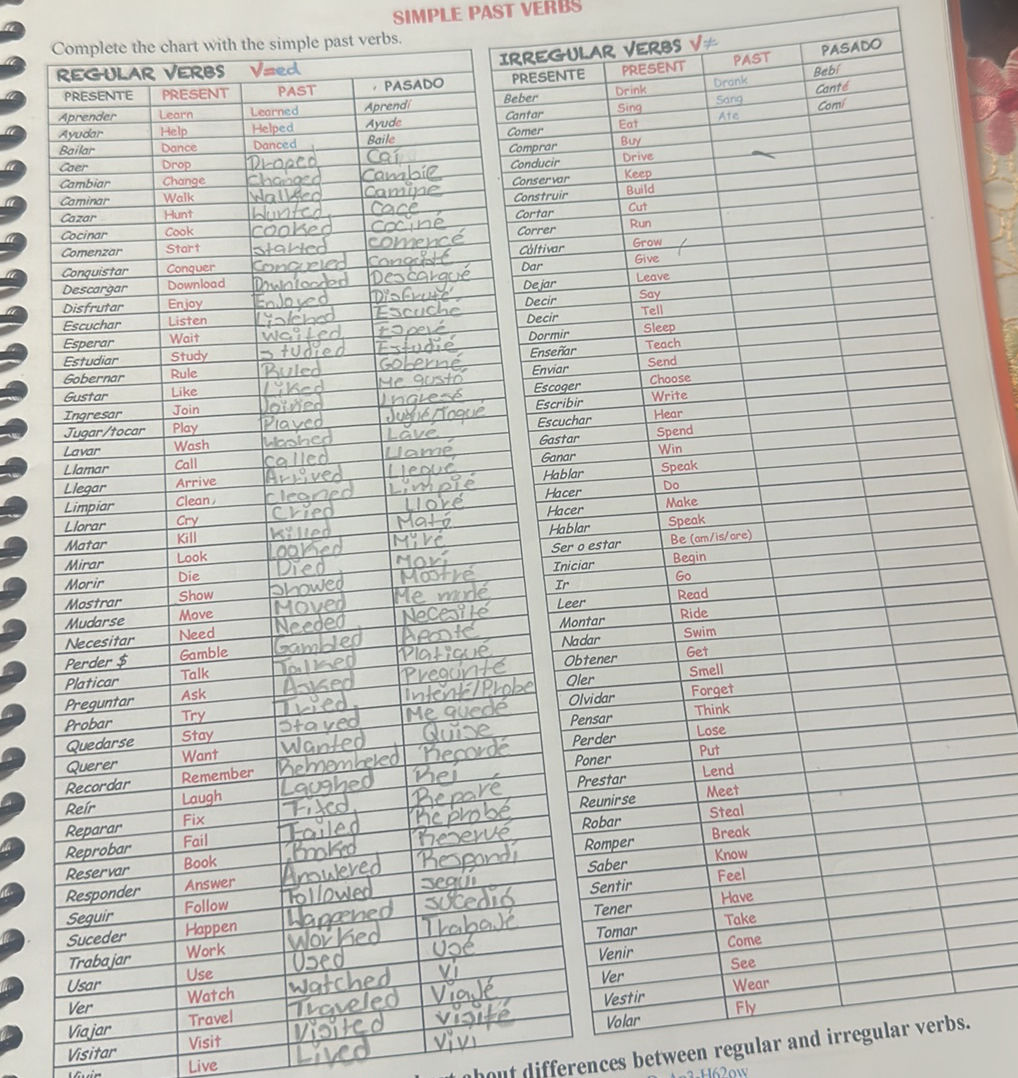 SIMPLE PAST VERBS
Complete the chart with the simple past verbs.
REGULAR VERBS V=ed
PRESENTE PRESENT PAST PASADO
Aprender Learn Learned Aprendí
Ayudar Help Helped Ayude
Bailar Dance Danced Baile
Caer Drop Droped Caí
Cambiar Change Changed Cambie
Caminar Walk Walked Camine
Cazar Hunt Hunted Cace
Cocinar Cook cooked cociné
Comenzar Start started comencé
Conquistar Conquer
Descargar Download Downloaded Descargué
Disfrutar Enjoy Enjoyed Disfruté
Escuchar Listen Escuche
Esperar Wait waited
Estudiar Study studied Estudié
Gobernar Rule Ruled Goberné
Gustar Like Liked Me gustó
Ingresar Join Joined Ingresé
Jugar/tocar Play Played Jugué/Toqué
Lavar Wash Washed Lavé
Llamar Call called Llamé
Llegar Arrive Arrived Llegué
Limpiar Clean cleaned Limpié
Llorar Cry cried Lloré
Matar Kill Killed Maté
Mirar Look Looked Miré
Morir Die Died Morí
Mostrar Show showed Mostré
Mudarse Move Moved Me mudé
Necesitar Need Needed Necesité
Perder $ Gamble Gambled Aposté
Platicar Talk Talked Platiqué
Preguntar Ask Asked Pregunté
Probar Try Tried Intenté/Probe
Quedarse Stay stayed Me quedé
Querer Want Wanted Quise
Recordar Remember Remembered Recordé
Reír Laugh Laughed Rei
Reparar Fix Fixed Reparé
Reprobar Fail Failed Reprobé
Reservar Book Booked Reservé
Responder Answer Answered Respondí
Seguir Follow Followed seguí
Suceder Happen Happened sucedió
Trabajar Work Worked Trabajé
Usar Use Used Usé
Ver Watch watched Vi
Viajar Travel Traveled Viajé
Visitar Visit Visited visité
Vivir Live Lived Viví
IRREGULAR VERBS V≠
PRESENTE PRESENT PAST PASADO
Beber Drink Drank Bebí
Cantar Sing Sang Canté
Comer Eat Ate Comí
Comprar Buy
Conducir Drive
Conservar Keep
Construir Build
Cortar Cut
Correr Run
Cultivar Grow
Dar Give
Dejar Leave
Decir Say
Decir Tell
Dormir Sleep
Enseñar Teach
Enviar Send
Escoger Choose
Escribir Write
Escuchar Hear
Gastar Spend
Ganar Win
Hablar Speak
Hacer Do
Hacer Make
Hablar Speak
Ser o estar Be (am/is/are)
Iniciar Begin
Ir Go
Leer Read
Montar Ride
Nadar Swim
Obtener Get
Oler Smell
Olvidar Forget
Pensar Think
Perder Lose
Poner Put
Prestar Lend
Reunirse Meet
Robar Steal
Romper Break
Saber Know
Sentir Feel
Tener Have
Tomar Take
Venir Come
Ver See
Vestir Wear
Volar Fly
about differences between regular and irregular verbs.